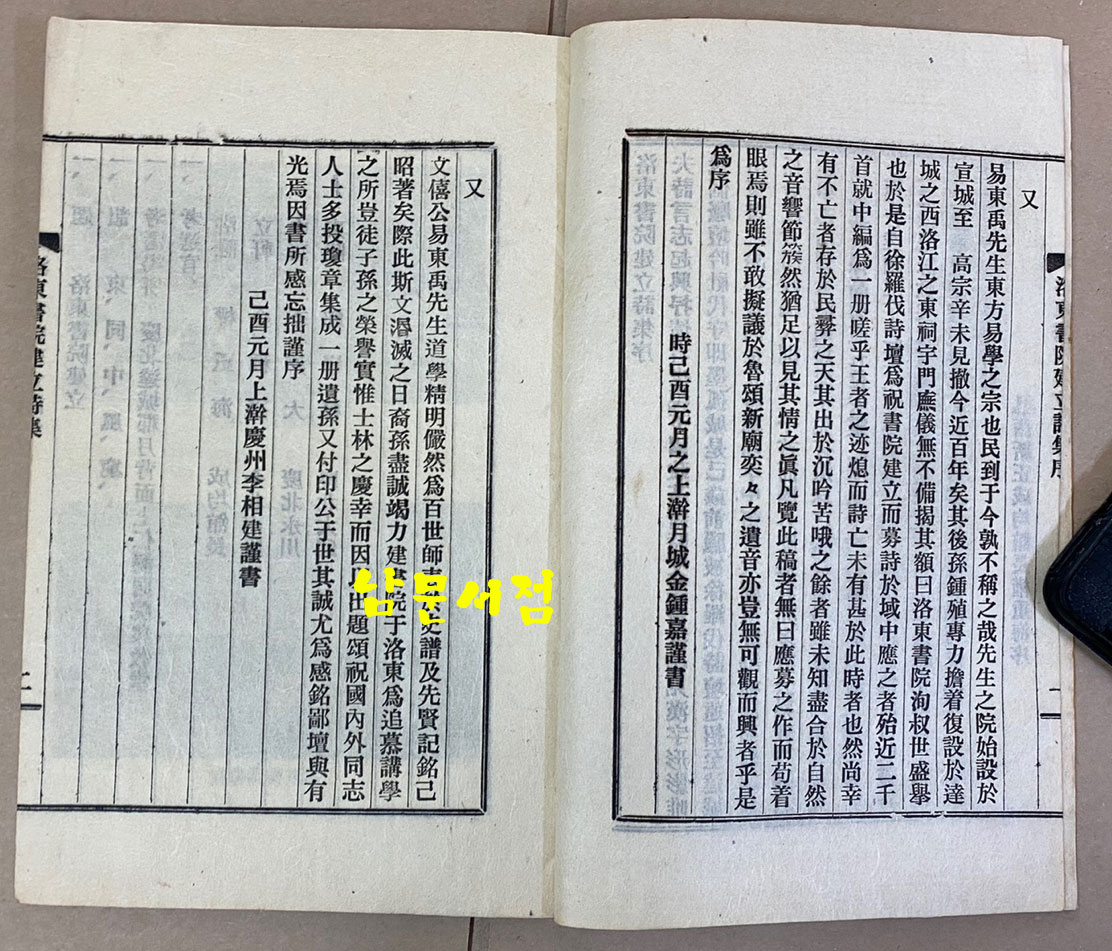 洛東書院建立詩集序
又
易東禹先生東方易學之宗也民到于今孰不稱之哉先生之院始設於
宣城至　高宗辛未見撤今近百年矣其後孫鍾殖專力擔着復設於達
城之西洛江之東祠宇門廡儀無不備揭其額曰洛東書院洵叔世盛擧
也於是自徐羅伐詩壇爲祝書院建立而募詩於域中應之者殆近二千
首就中編爲一册嗟乎王者之迹熄而詩亡未有甚於此時者也然尚幸
有不亡者存於民彛之天其出於沉吟苦哦之餘者雖未知盡合於自然
之音響節簇然猶足以見其情之眞凡覽此稿者無曰應募之作而苟着
眼焉則雖不敢擬議於魯頌新廟奕々之遺音亦豈無可觀而興者乎是
爲序
時己酉元月之上澣月城金鍾嘉謹書
一
又
文僖公易東禹先生道學精明儼然爲百世師表史譜及先賢記銘己
昭著矣際此斯文湮滅之日裔孫盡誠竭力建書院于洛東爲追慕講學
之所豈徒子孫之榮譽實惟士林之慶幸而因出題頌祝國內外同志
人士多投瓊章集成一册遺孫又付印公于世其誠尤爲感銘鄙壇與有
光焉因書所感忘拙謹序
己酉元月上澣慶州李相建謹書
洛東書院建立詩集
二
남문서점